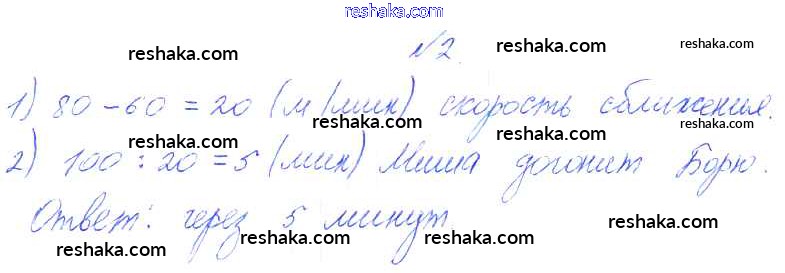 reshaka.com
reshaka.com reshaka.com reshaka.com
№2.
1) 80 - 60 = 20 (м/мин) скорость сближения.
reshaka.com reshaka.com reshaka.com
2) 100 : 20 = 5 (мин) Миша догонит Борю.
reshaka.com reshaka.com reshaka.com
Ответ: через 5 минут
reshaka.com reshaka.com reshaka.com